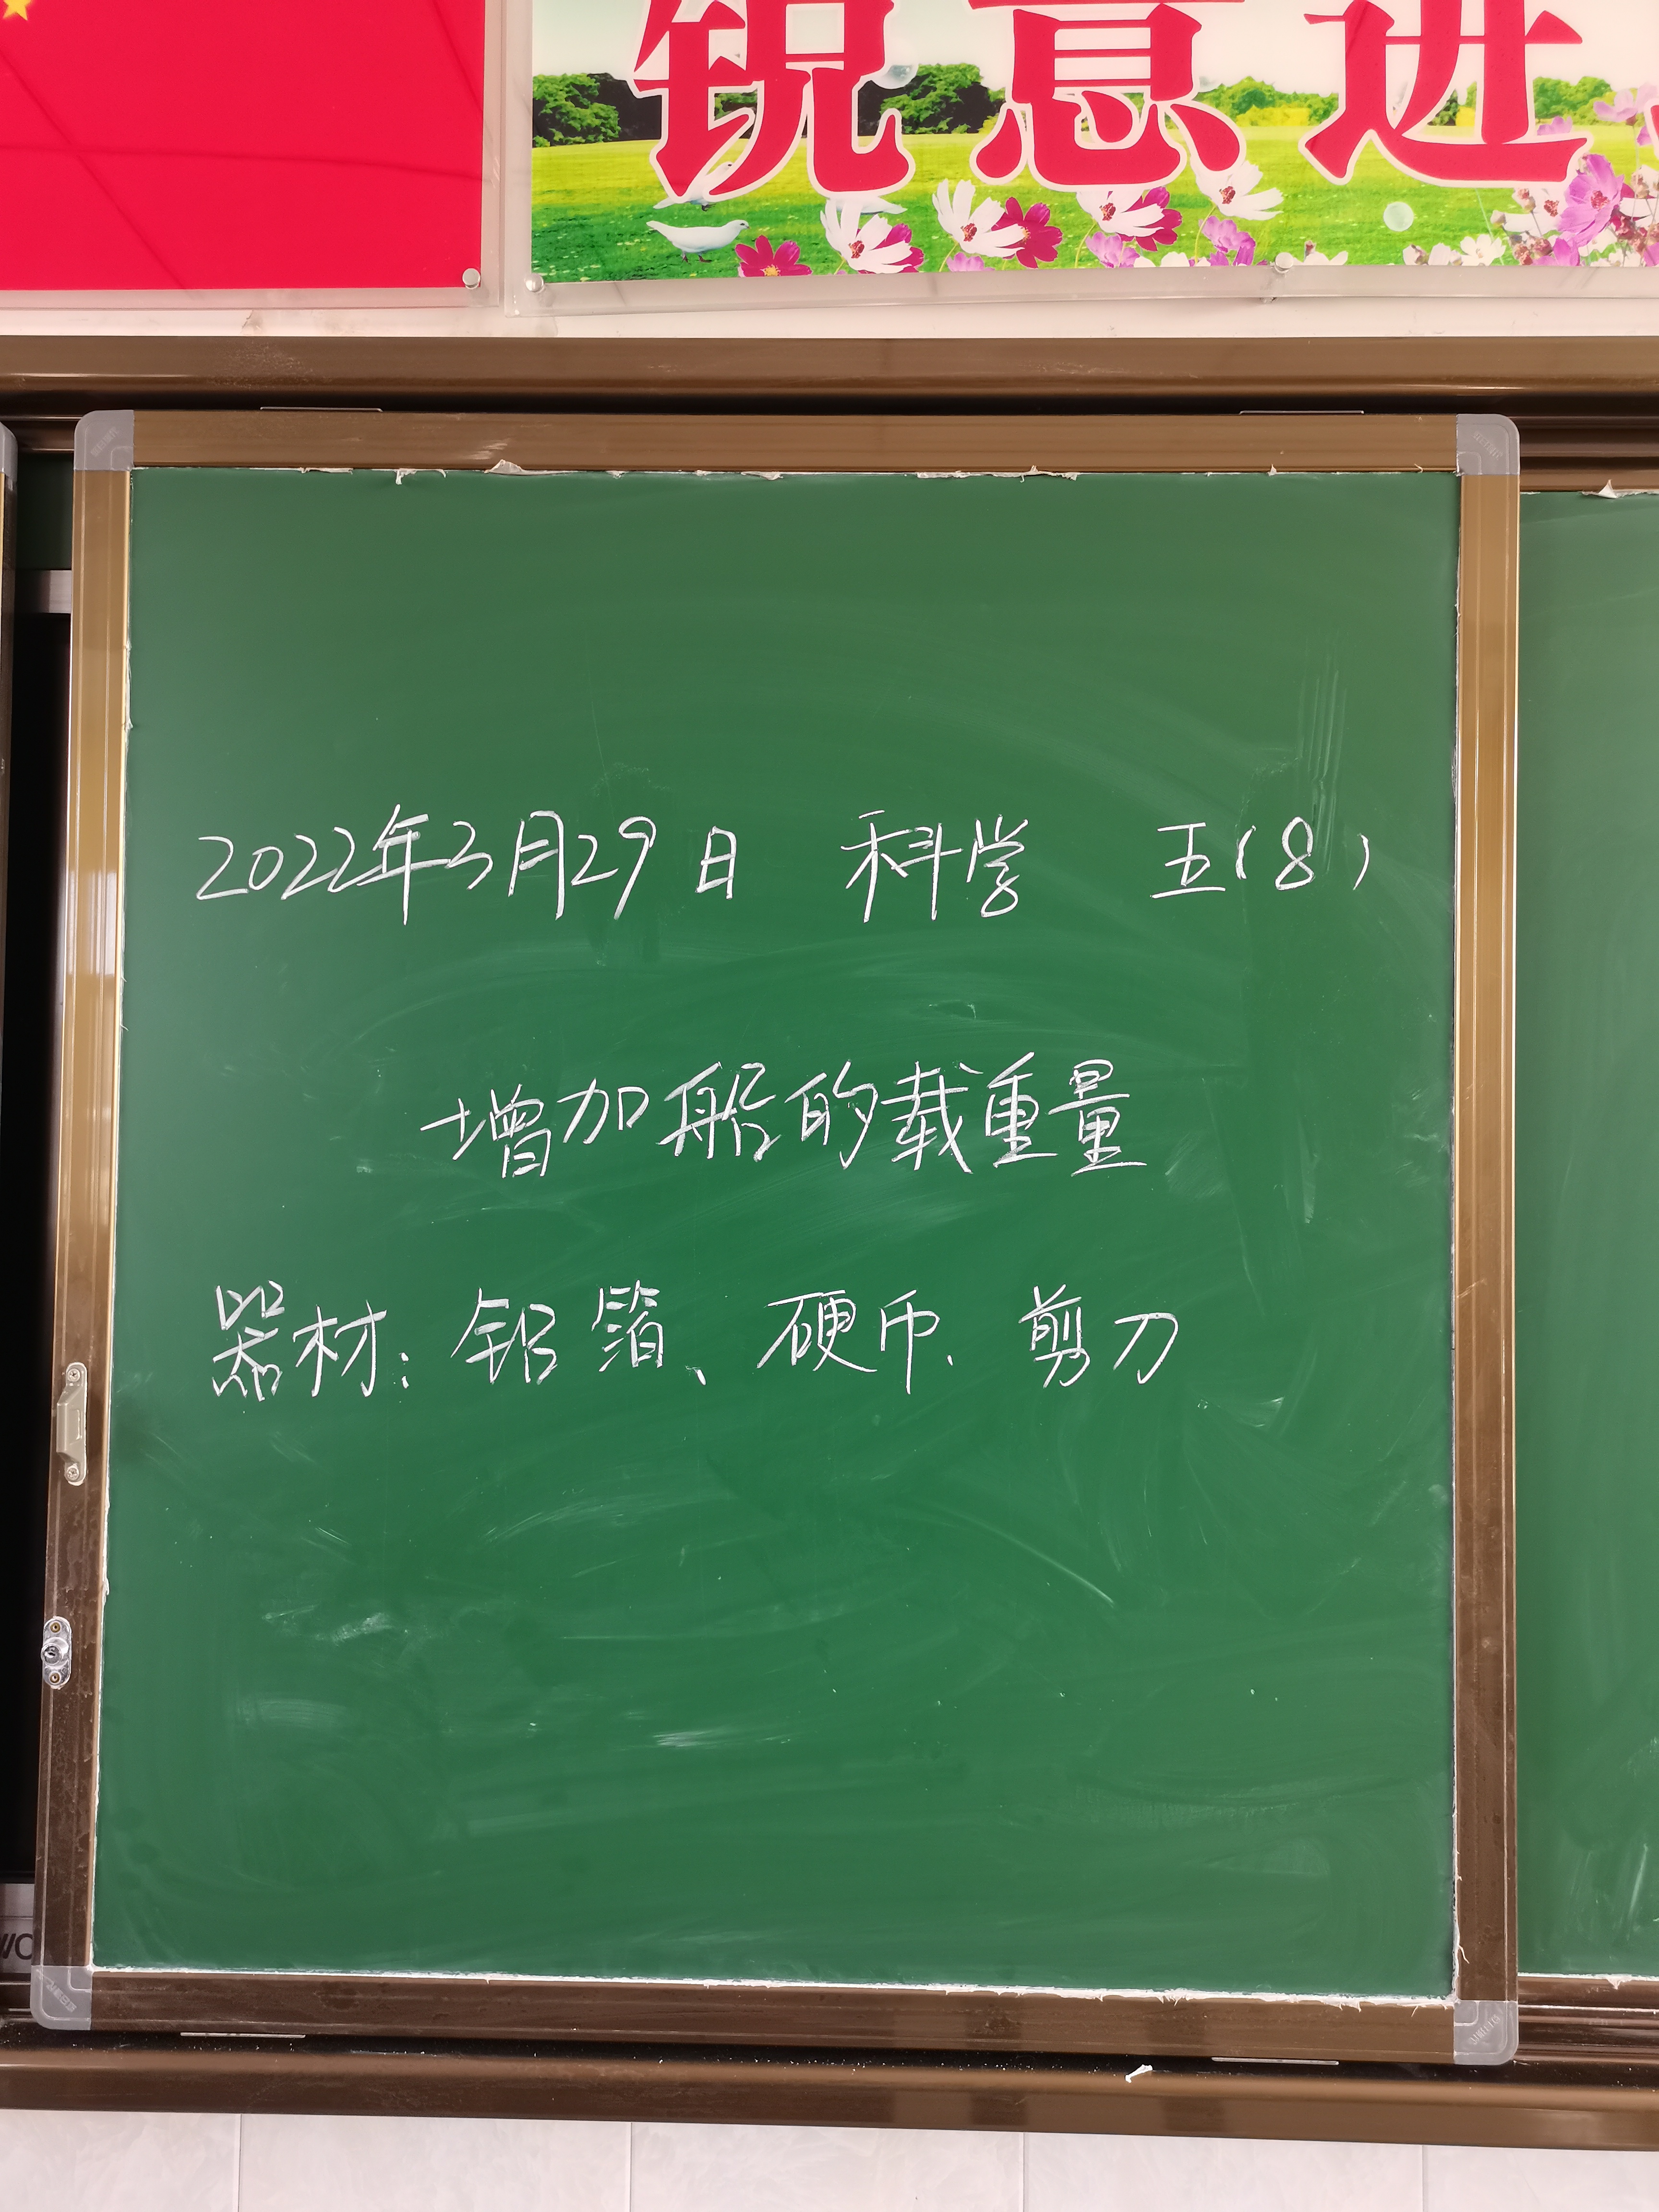 锐意进
2022年3月29日 科学 五(8)
增加船的载重量
器材：铝箔、硬币、剪刀